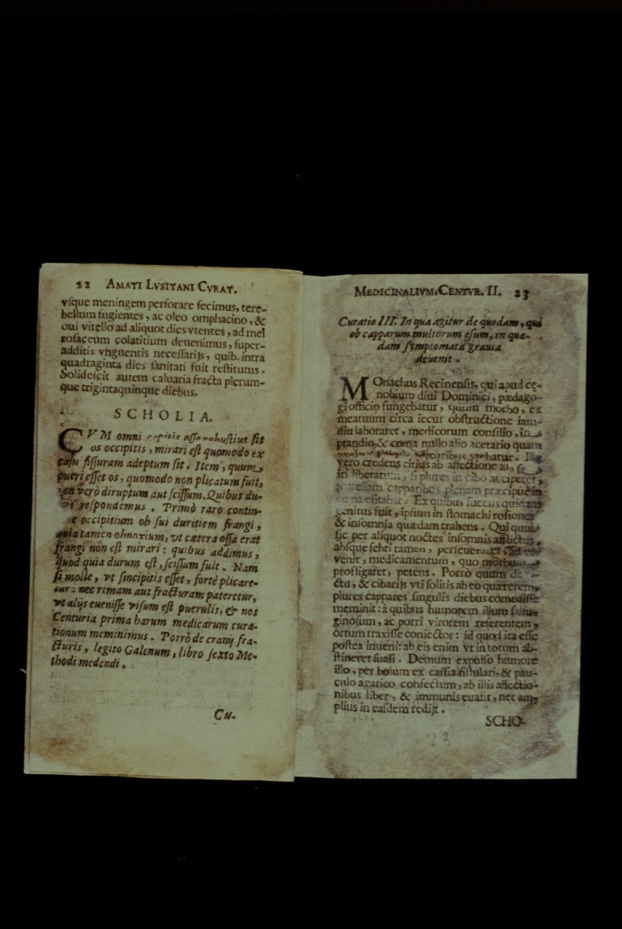 22 AMATI LVSITANI CVRAT.
vsque meningem perforare fecimus, tere-
bellum fugientes, ac oleo omphacino, &
oui vitello ad aliquot dies vtentes, ad mel
rosaceum colatitium deuenimus, super-
additis vnguentis necessarijs, quib. intra
quadraginta dies sanitati fuit restitutus.
Solidescit autem caluaria fracta plerum-
que trigintaquinque diebus.
SCHOLIA.
CVM omni capitis osse robustius sit
os occipitis, mirari est quomodo ex
casu fissuram adeptum sit. Item, quum
pueri esset os, quomodo non plicatum fuit,
non verò diruptum aut scissum. Quibus du-
respondemus. Primò raro contin-
occipitium ob sui duritiem frangi,
quia tamen obnoxium, vt cætera ossa erat
frangi non est mirari: quibus addimus,
quod quia durum est, scissum fuit. Nam
si molle, vt sincipitis esset, fortè plicare-
tur: nec rimam aut fracturam pateretur,
vt alijs euenisse visum est puerulis, & nos
Centuria prima harum medicarum cura-
tionum meminimus. Porrò de cranij fra-
cturis, legito Galenum, libro sexto Me-
thodi medendi.
Cu-
MEDICINALIVM. CENTVR. II. 23
Curatio III. In qua agitur de quodam, qui
ob capparum multorum esum, in quæ-
dam symptomata grauia
deuenit.
MOnachus Recinensis, qui apud cę-
nobium diui Dominici, pædago-
gi officio fungebatur, quum morbo, ex
meatuum circa iecur obstructione iam-
diu laboraret, medicorum consilio, in
prandio, & cœna nullo alio acetario quam
capparibus vtebatur. Ille
vero credens citius ab affectione
liberatum, si plures in cibo acciperet,
capparibus plenam præcipue in
cœna esitabat. Ex quibus succus quidam
genitus fuit, ipsum in stomachi rosiones
& insomnia quædam trahens. Qui quum
sic per aliquot noctes insomnis afflictus,
absque febri tamen, perseueraret,
venit, medicamentum, quo morbum
profligaret, petens. Porrò quum de
ctu, & cibarijs vti solitis ab eo quærerem,
plures cappares singulis diebus comedisse
meminit: à quibus humorem illum fuligi-
ginosum, ac porri virorem referentem,
ortum traxisse coniector: id quod ita esse
postea inueni: ab eis enim vt in totum ab-
stineret suasi. Demum expulso humore
illo, per bolum ex cassia fistulari, & pau-
culo agarico confectum, ab illis affectio-
nibus liber, & immunis euasit, nec am-
plius in easdem redijt.
SCHO-
23